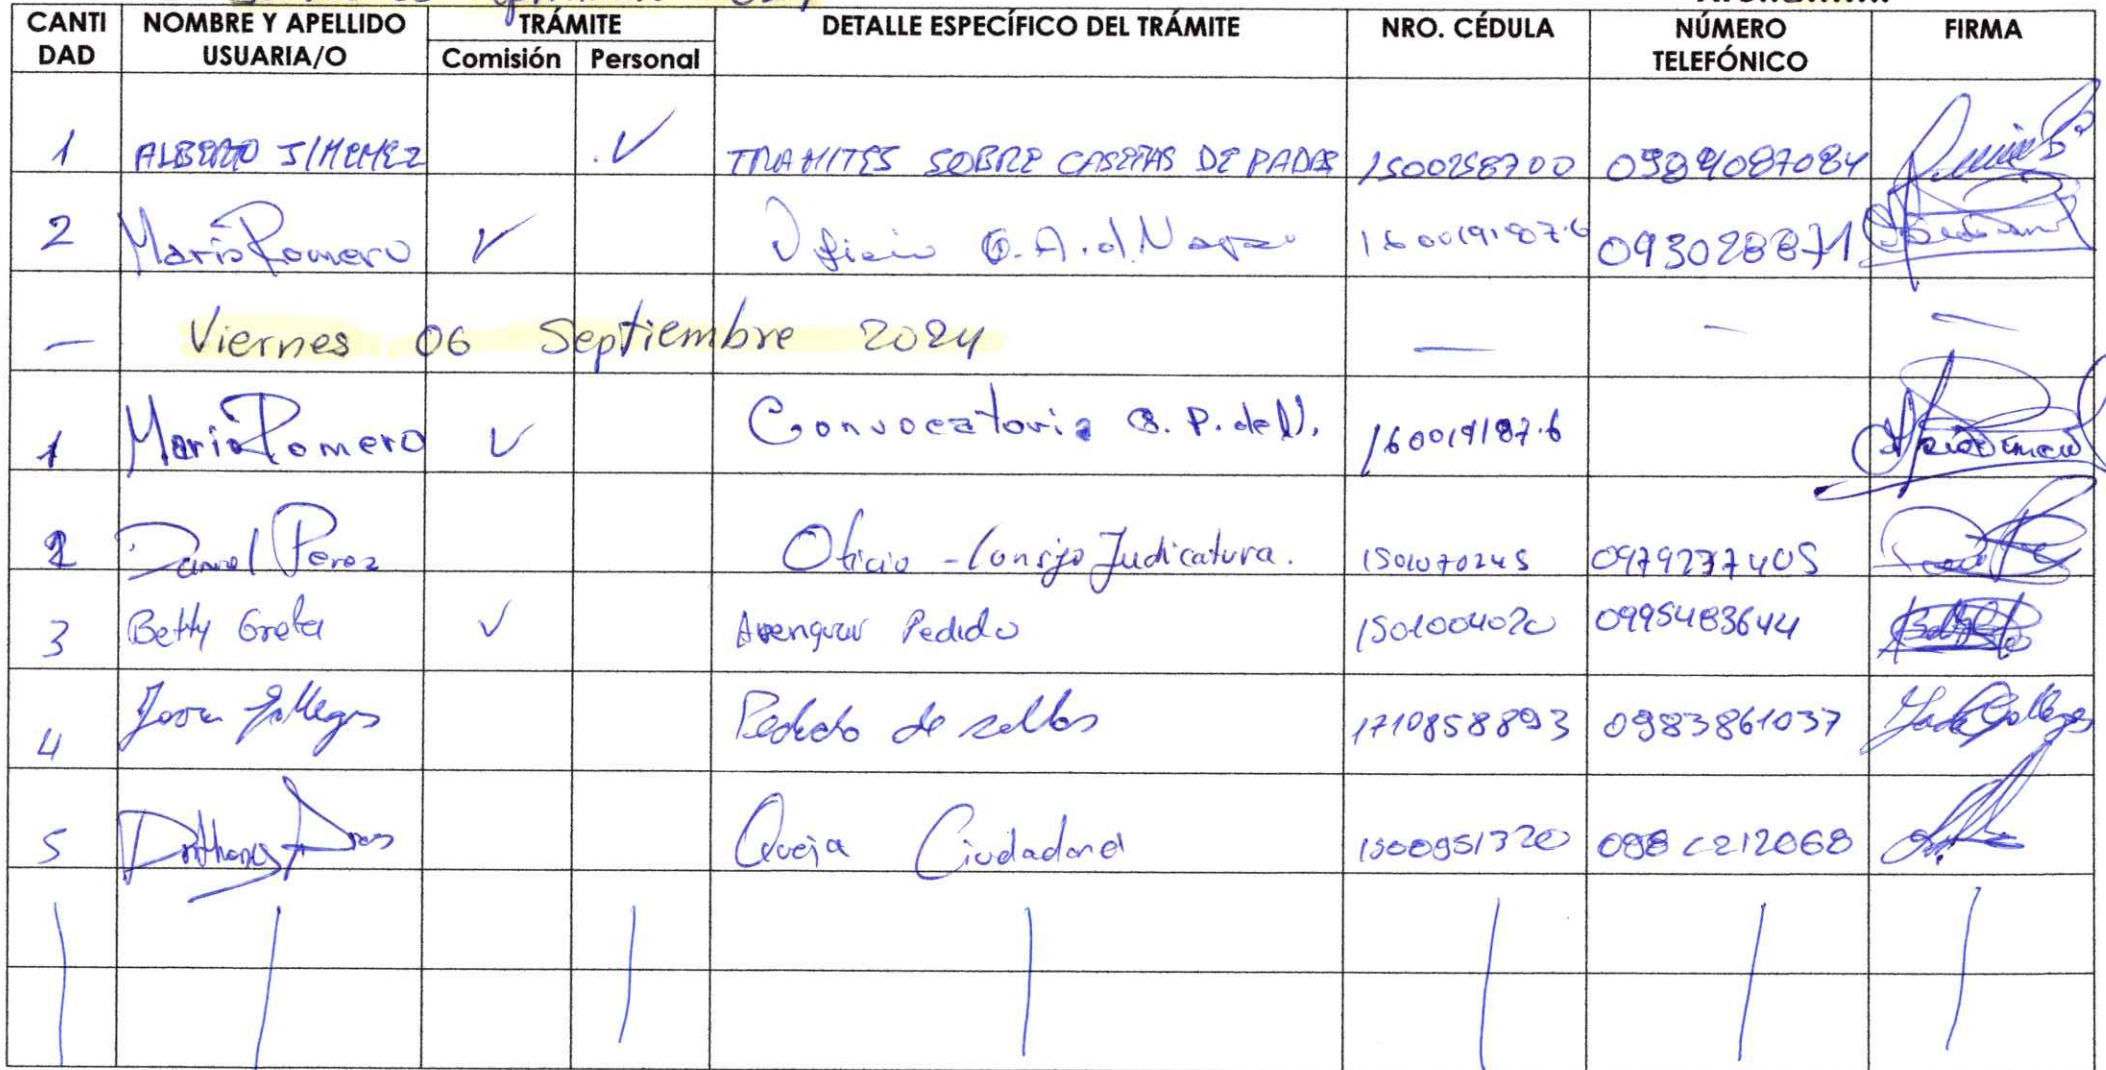 CANTI DAD NOMBRE Y APELLIDO USUARIA/O TRÁMITE Comisión Personal DETALLE ESPECÍFICO DEL TRÁMITE NRO. CÉDULA NÚMERO TELEFÓNICO FIRMA
1 ALBERTO JIMENEZ ✓ TRAMITES SOBRE CASETAS DE PADAS 1500258700 0989087084
2 Mario Romero ✓ Oficio G.A.d. Napo 160019187.6 093028871
— Viernes 06 Septiembre 2024 — — —
1 Mario Romero ✓ Convocatoria G.P. de N. 160019187.6
2 Daniel Perez Oficio - Consejo Judicatura. 1501070245 0979277405
3 Betty Grefa ✓ Averiguar Pedido 1501004020 0995483644
4 Gallegos Pedido de sellos 1710858893 0983861037
5 Queja Ciudadana 1500951320 098 212068